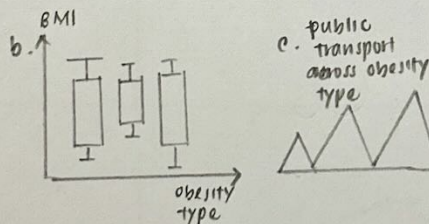 BMI
b.
obesity
type
c. public
transport
across obesity
type